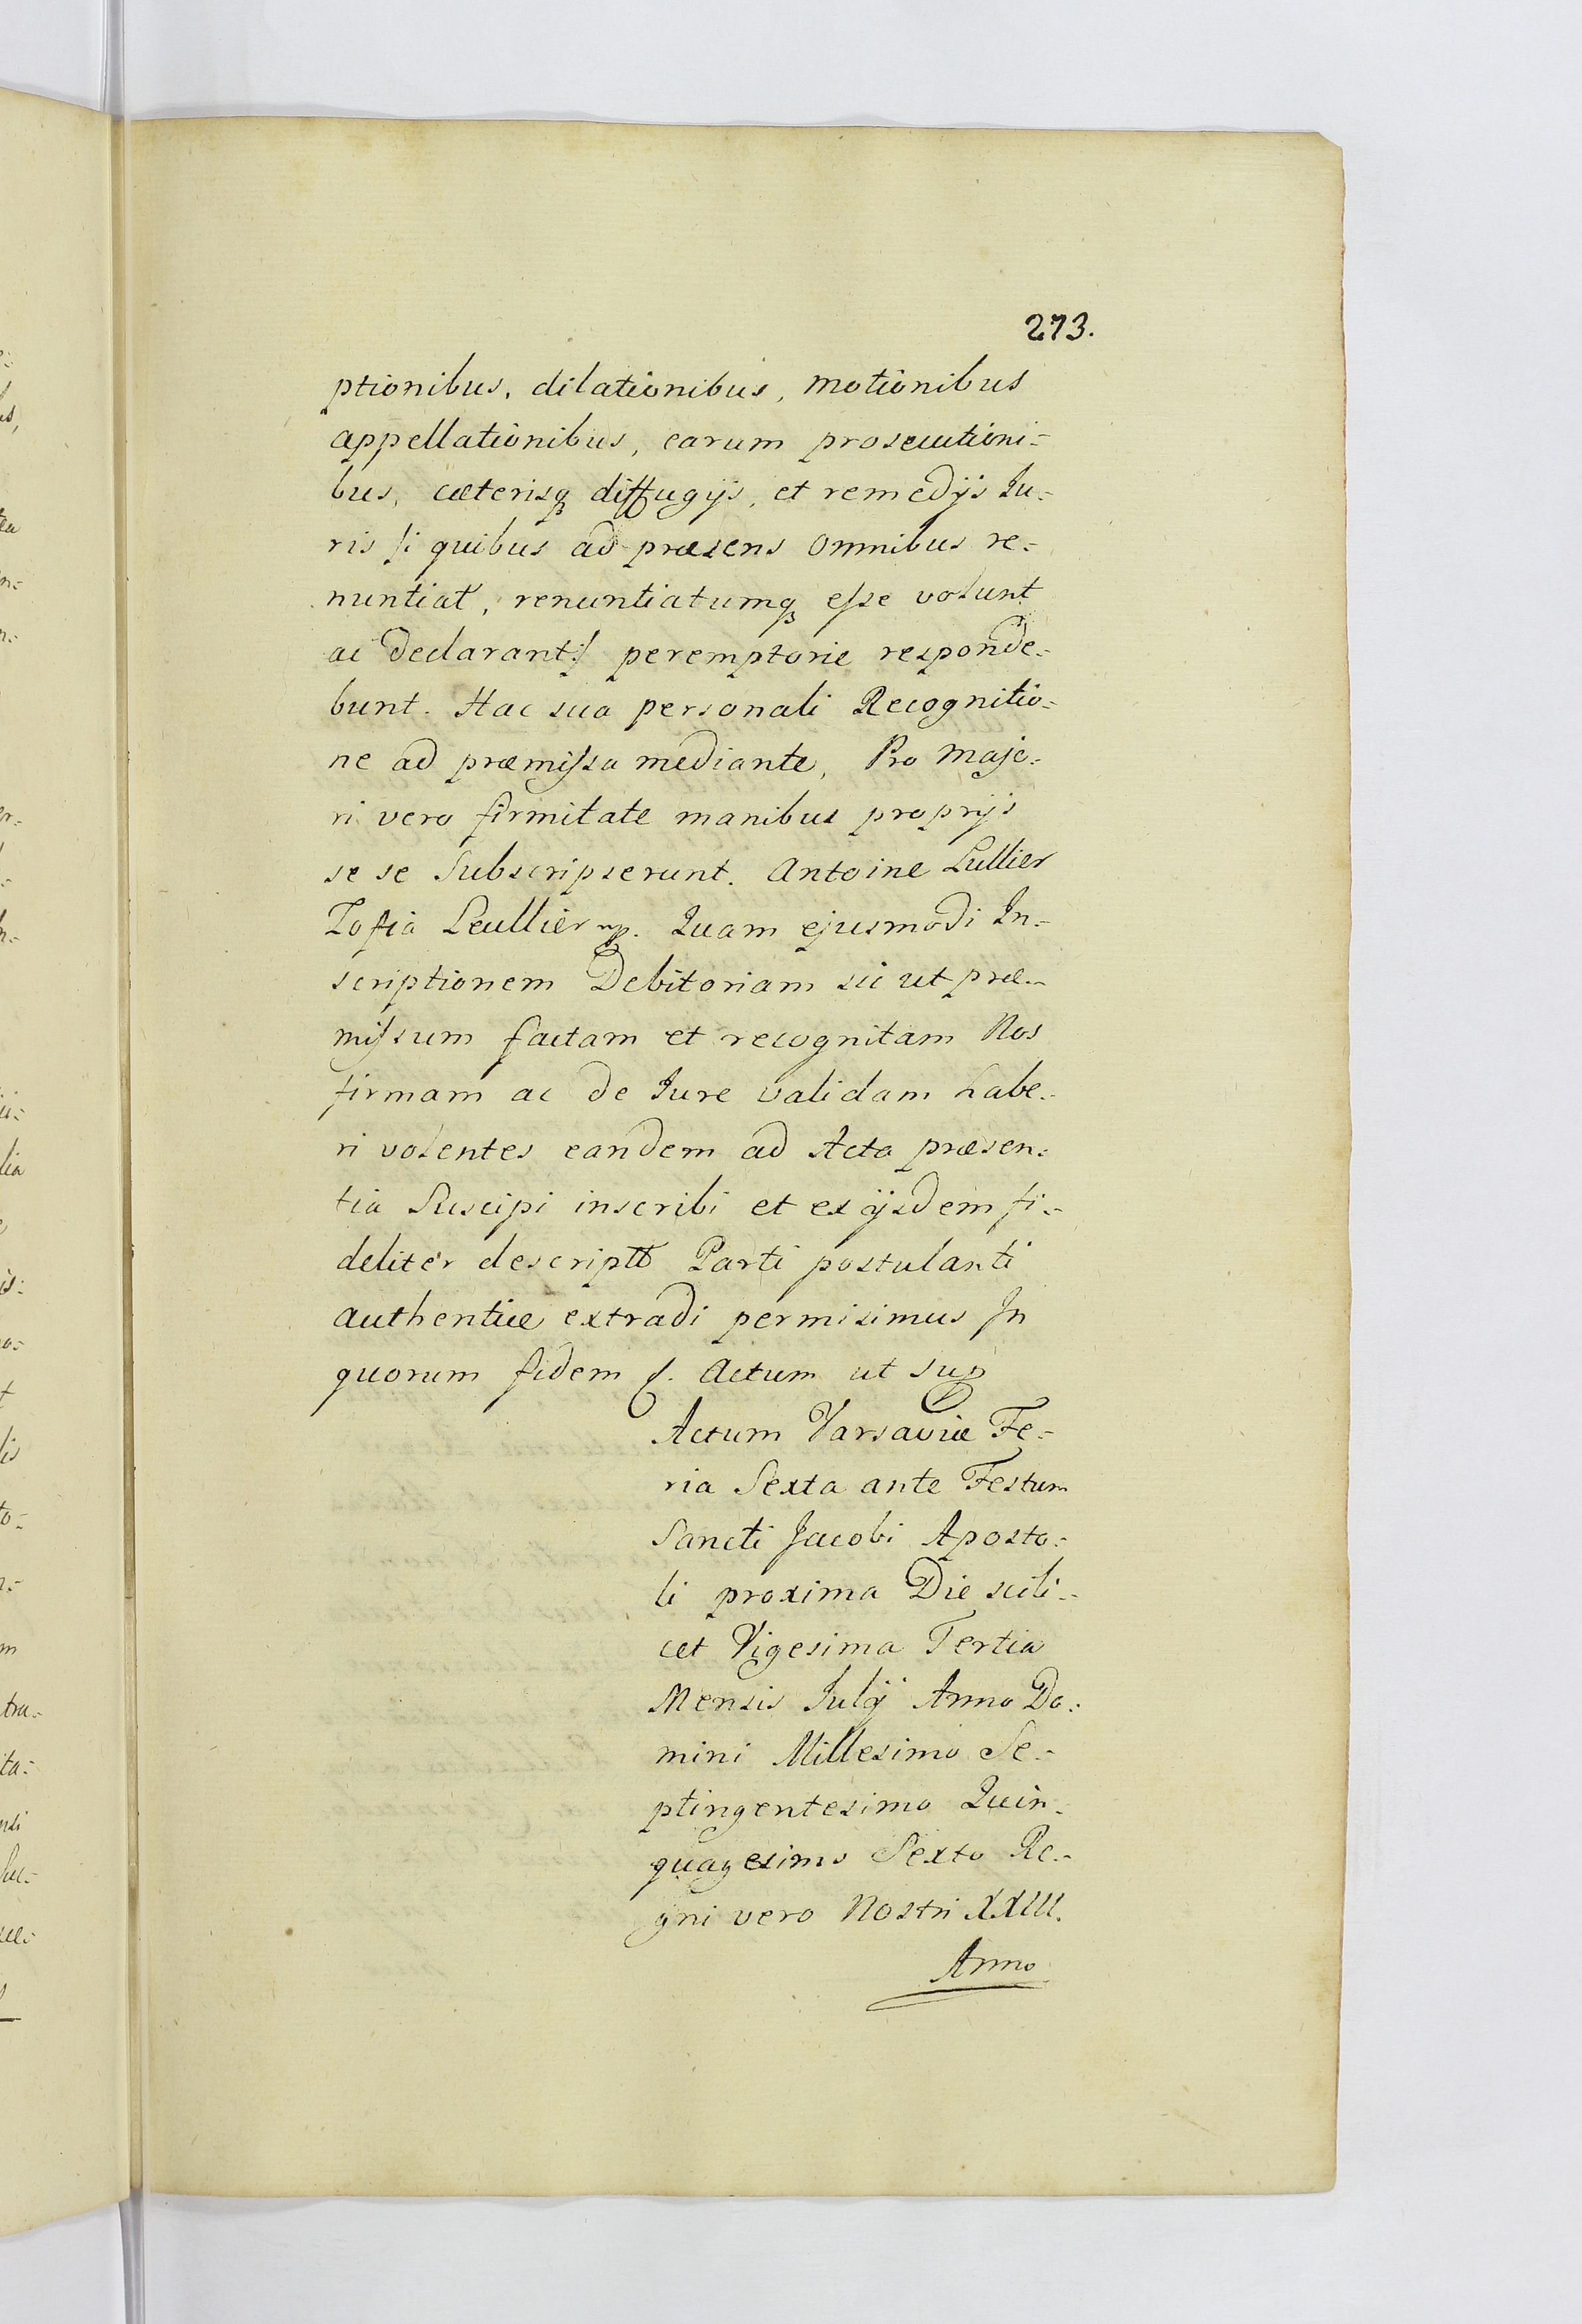 273.
ptionibus, dilationibus, motionibus
appellationibus, earum prosecutioni=
bus, cæterisq diffugijs, et remedijs Ju=
ris /: quibus ad præsens omnibus re=
nuntiat, renuntiatumq esse volunt
ac declarant :/ peremptorie responde=
bunt. Hac sua personali Recognitio=
ne ad præmissa mediante, Pro majo=
ri vero firmitate manibus proprijs
se se subscripserunt. Antoine Lullier
Zofia Leullier mp. Quam ejusmodi In=
scriptionem Debitoriam sic ut præ=
missum factam et recognitam Nos
firmam ac de Jure validam habe=
ri volentes eandem ad Acta præsen=
tia Suscipi inscribi et ex ijsdem fi=
deliter descriptt Parti postulanti
authentice extradi permisimus In
quorum fidem &. Actum ut sup
Actum Varsaviæ Fe=
ria Sexta ante Festum
Sancti Jacobi Aposto=
li proxima Die scili=
cet Vigesima Tertia
Mensis Julij Anno Do=
mini Millesimo Se=
ptingentesimo Quin=
quagesimo Sexto Re=
gni vero Nostri XXIII.
Anno